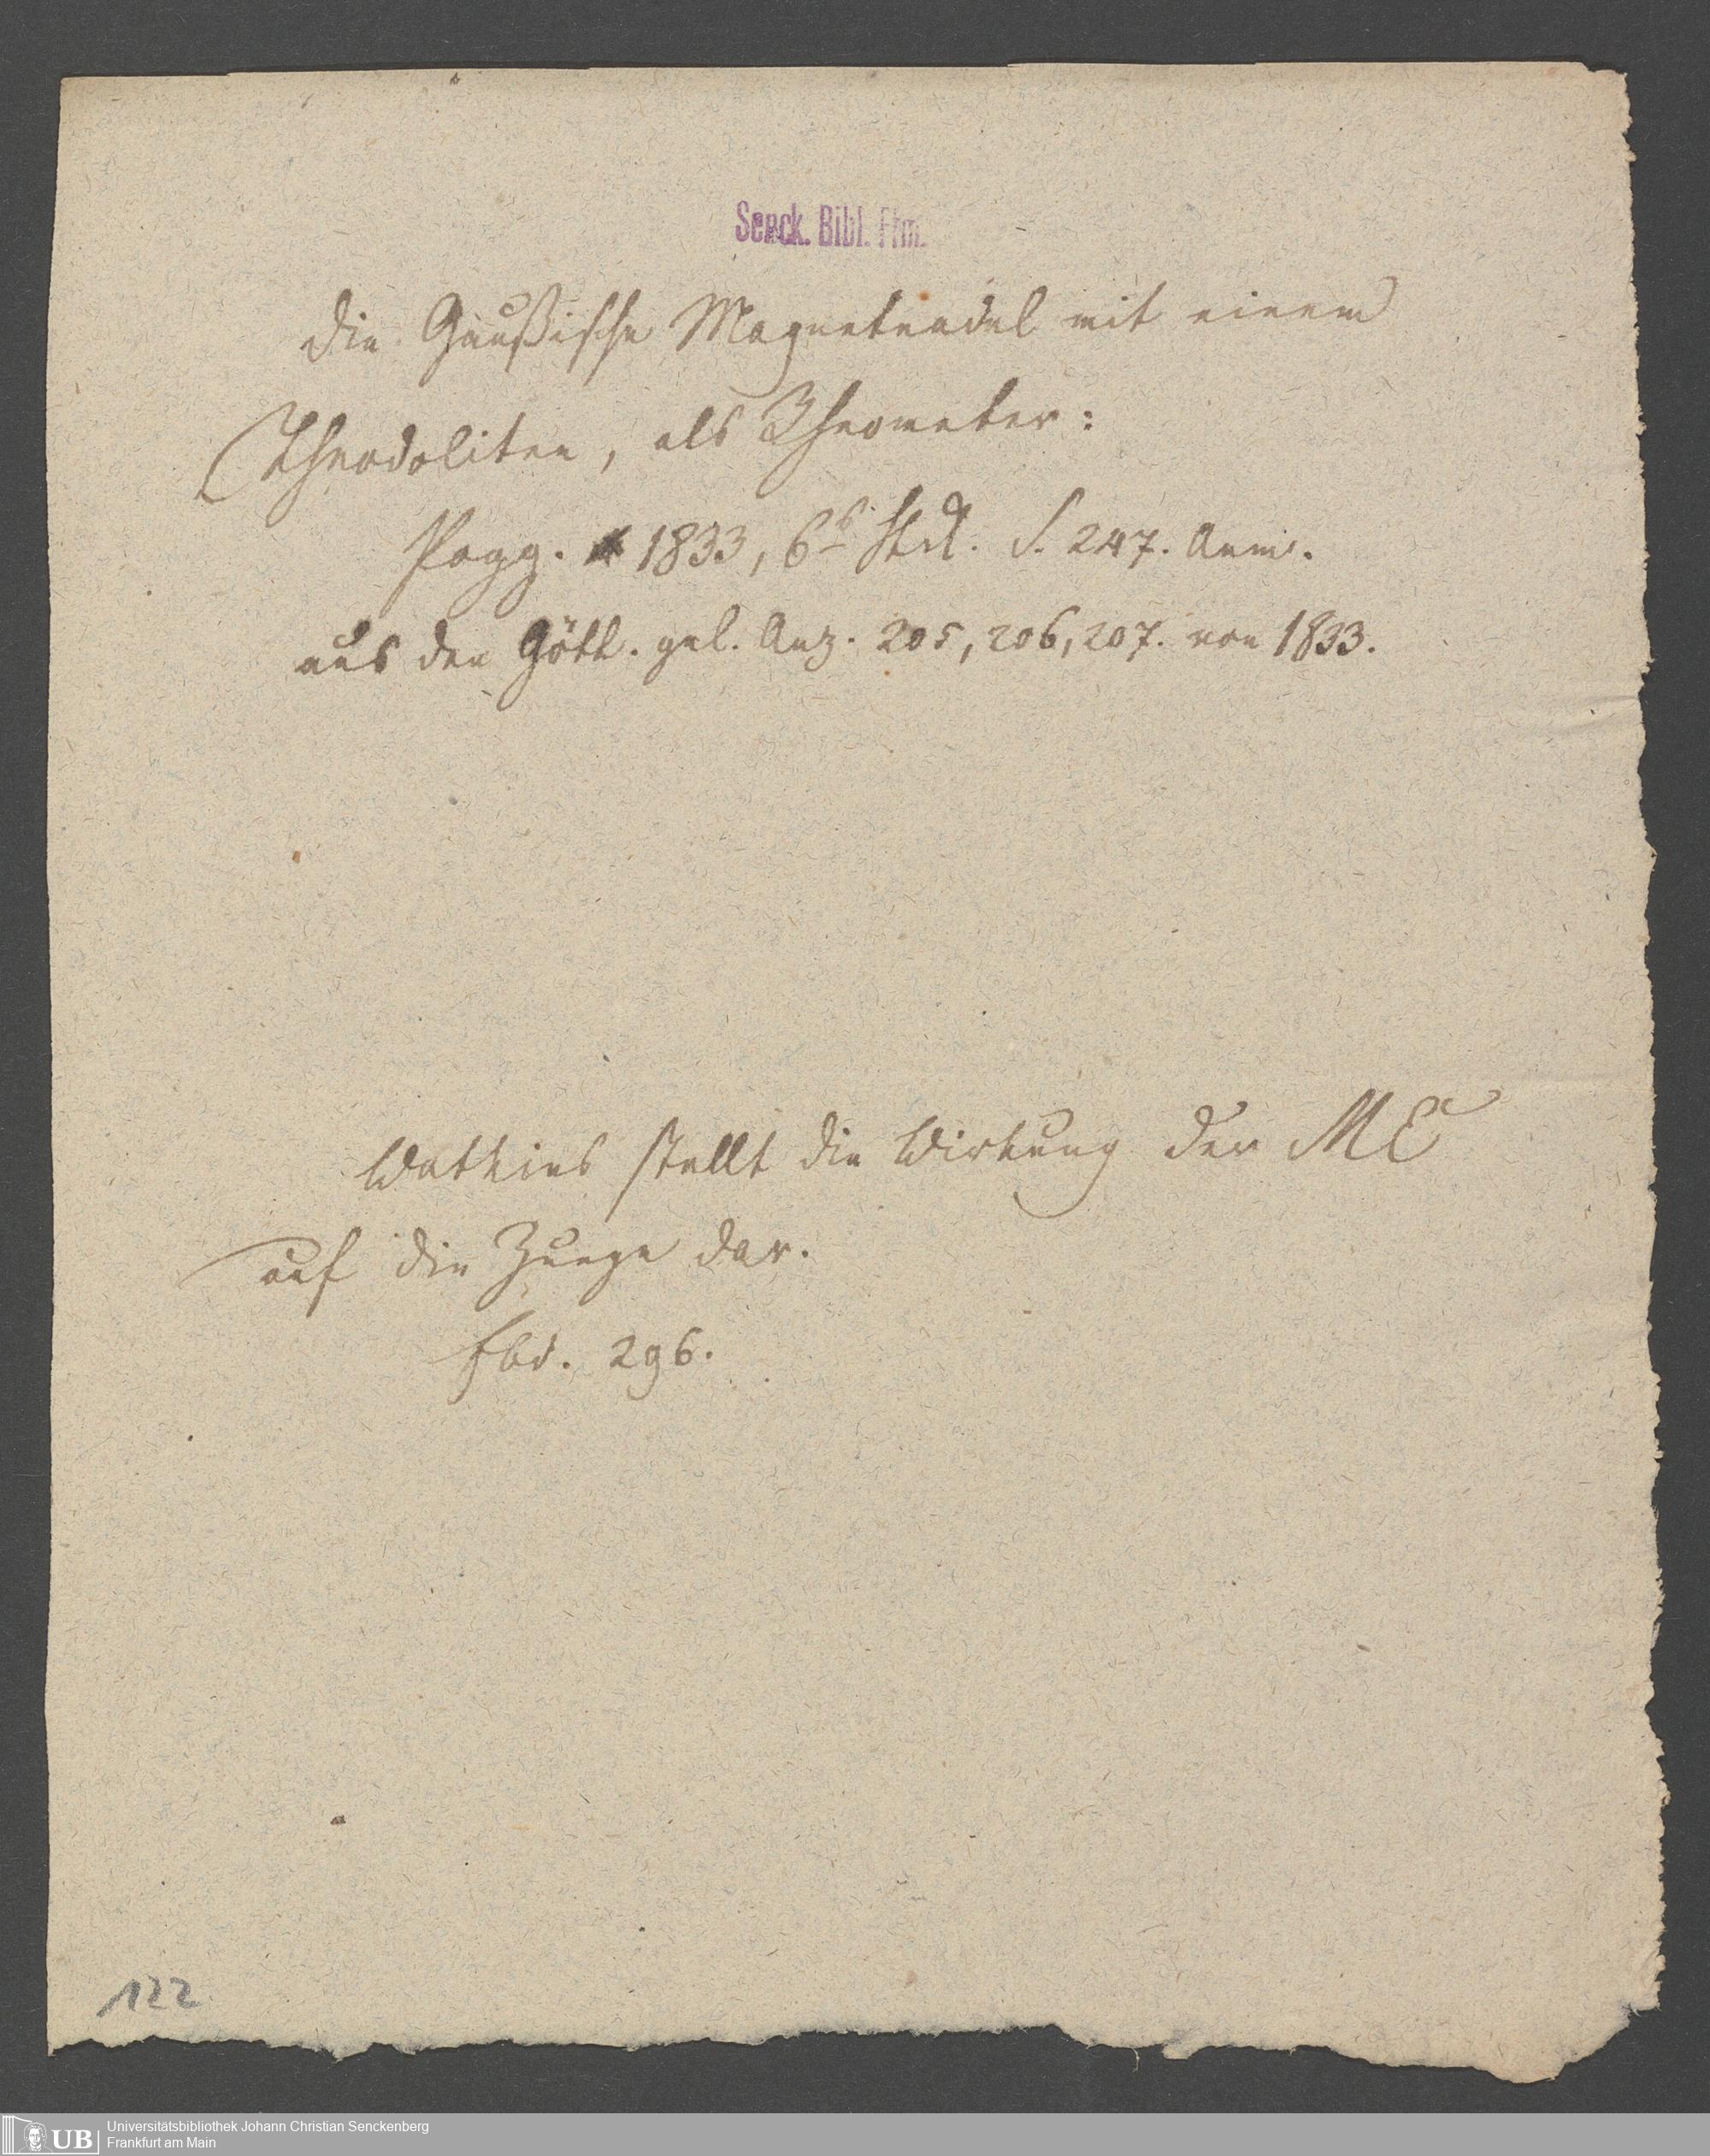 Senck. Bibl. Ffm.
Die Gaußische Magnetnadel mit einem
Theodoliten, als Rheometer:
Pogg. 1833, 6s Stck. S. 247. Anm.
aus den Gött. gel. Anz. 205, 206, 207. von 1833.
Watkins stellt die Wirkung der ME
auf die Zunge dar.
Ebd. 296.
122
UB
Universitätsbibliothek Johann Christian Senckenberg
Frankfurt am Main